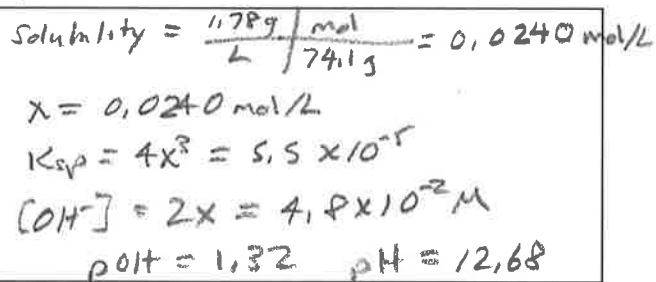 Solubility = 1.78g/L | mol/74.1g = 0.0240 mol/L
x = 0.0240 mol/L
Ksp = 4x³ = 5.5 x 10⁻⁵
[OH⁻] = 2x = 4.8x10⁻² M
pOH = 1.32 pH = 12.68